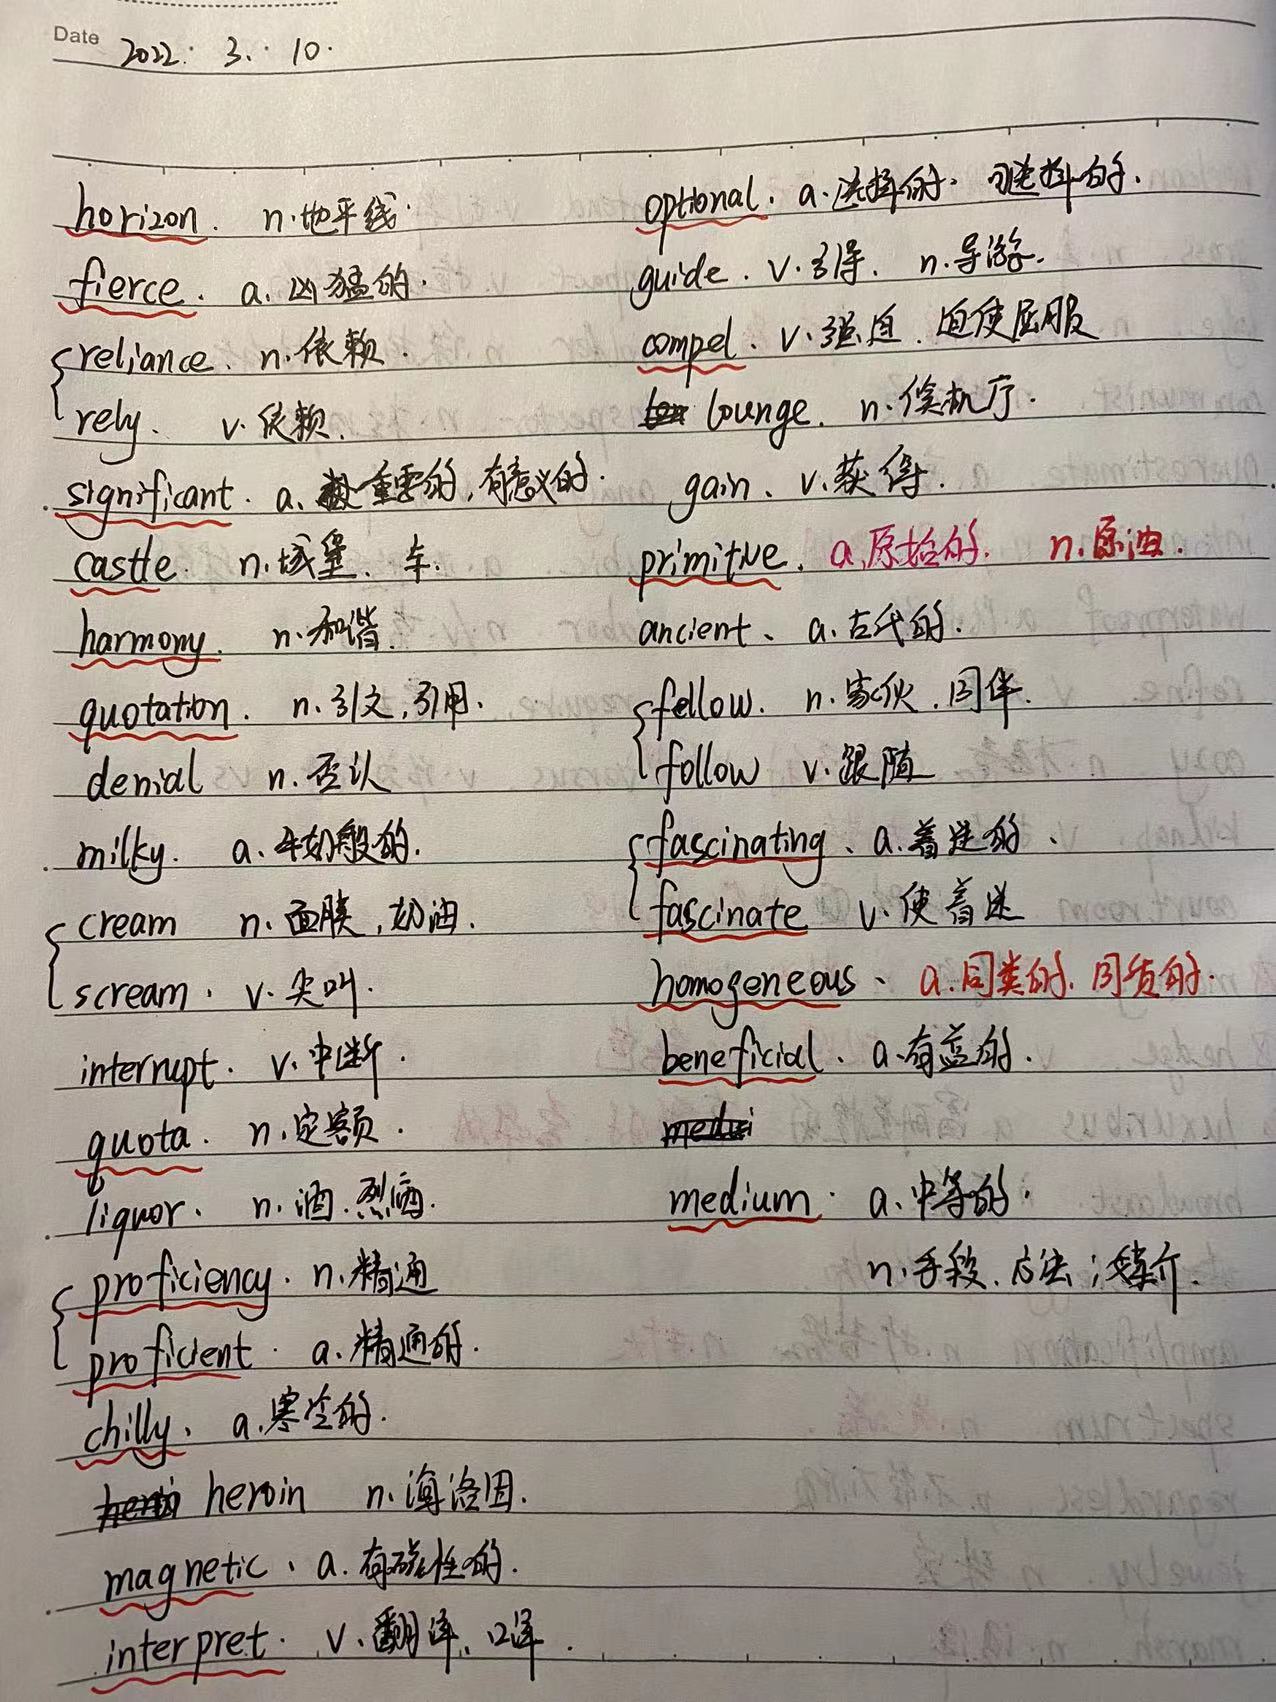 Date 2022. 3. 10.
horizon. n.地平线.
fierce. a.凶猛的.
reliance. n.依赖.
rely. v.依赖.
significant. a.重要的,有意义的.
castle. n.城堡、车.
harmony. n.和谐.
quotation. n.引文,引用.
denial n.否认
milky. a.牛奶般的.
cream n.面膜,奶油.
scream. v.尖叫.
interrupt. v.中断.
quota. n.定额.
liquor. n.酒.烈酒.
proficiency. n.精通
proficient. a.精通的.
chilly. a.寒冷的.
heroin n.海洛因.
magnetic. a.有磁性的.
interpret. v.翻译、口译.
optional. a.选择的. 可选择的.
guide. v.引导. n.导游.
compel. v.强迫.迫使屈服
lounge. n.候机厅.
gain. v.获得.
primitive. a.原始的. n.原油.
ancient. a.古代的.
fellow. n.家伙.同伴.
follow v.跟随
fascinating. a.着迷的.
fascinate v.使着迷
homogeneous. a.同类的.同质的.
beneficial. a.有益的.
medium. a.中等的.
n.手段.方法;媒介.